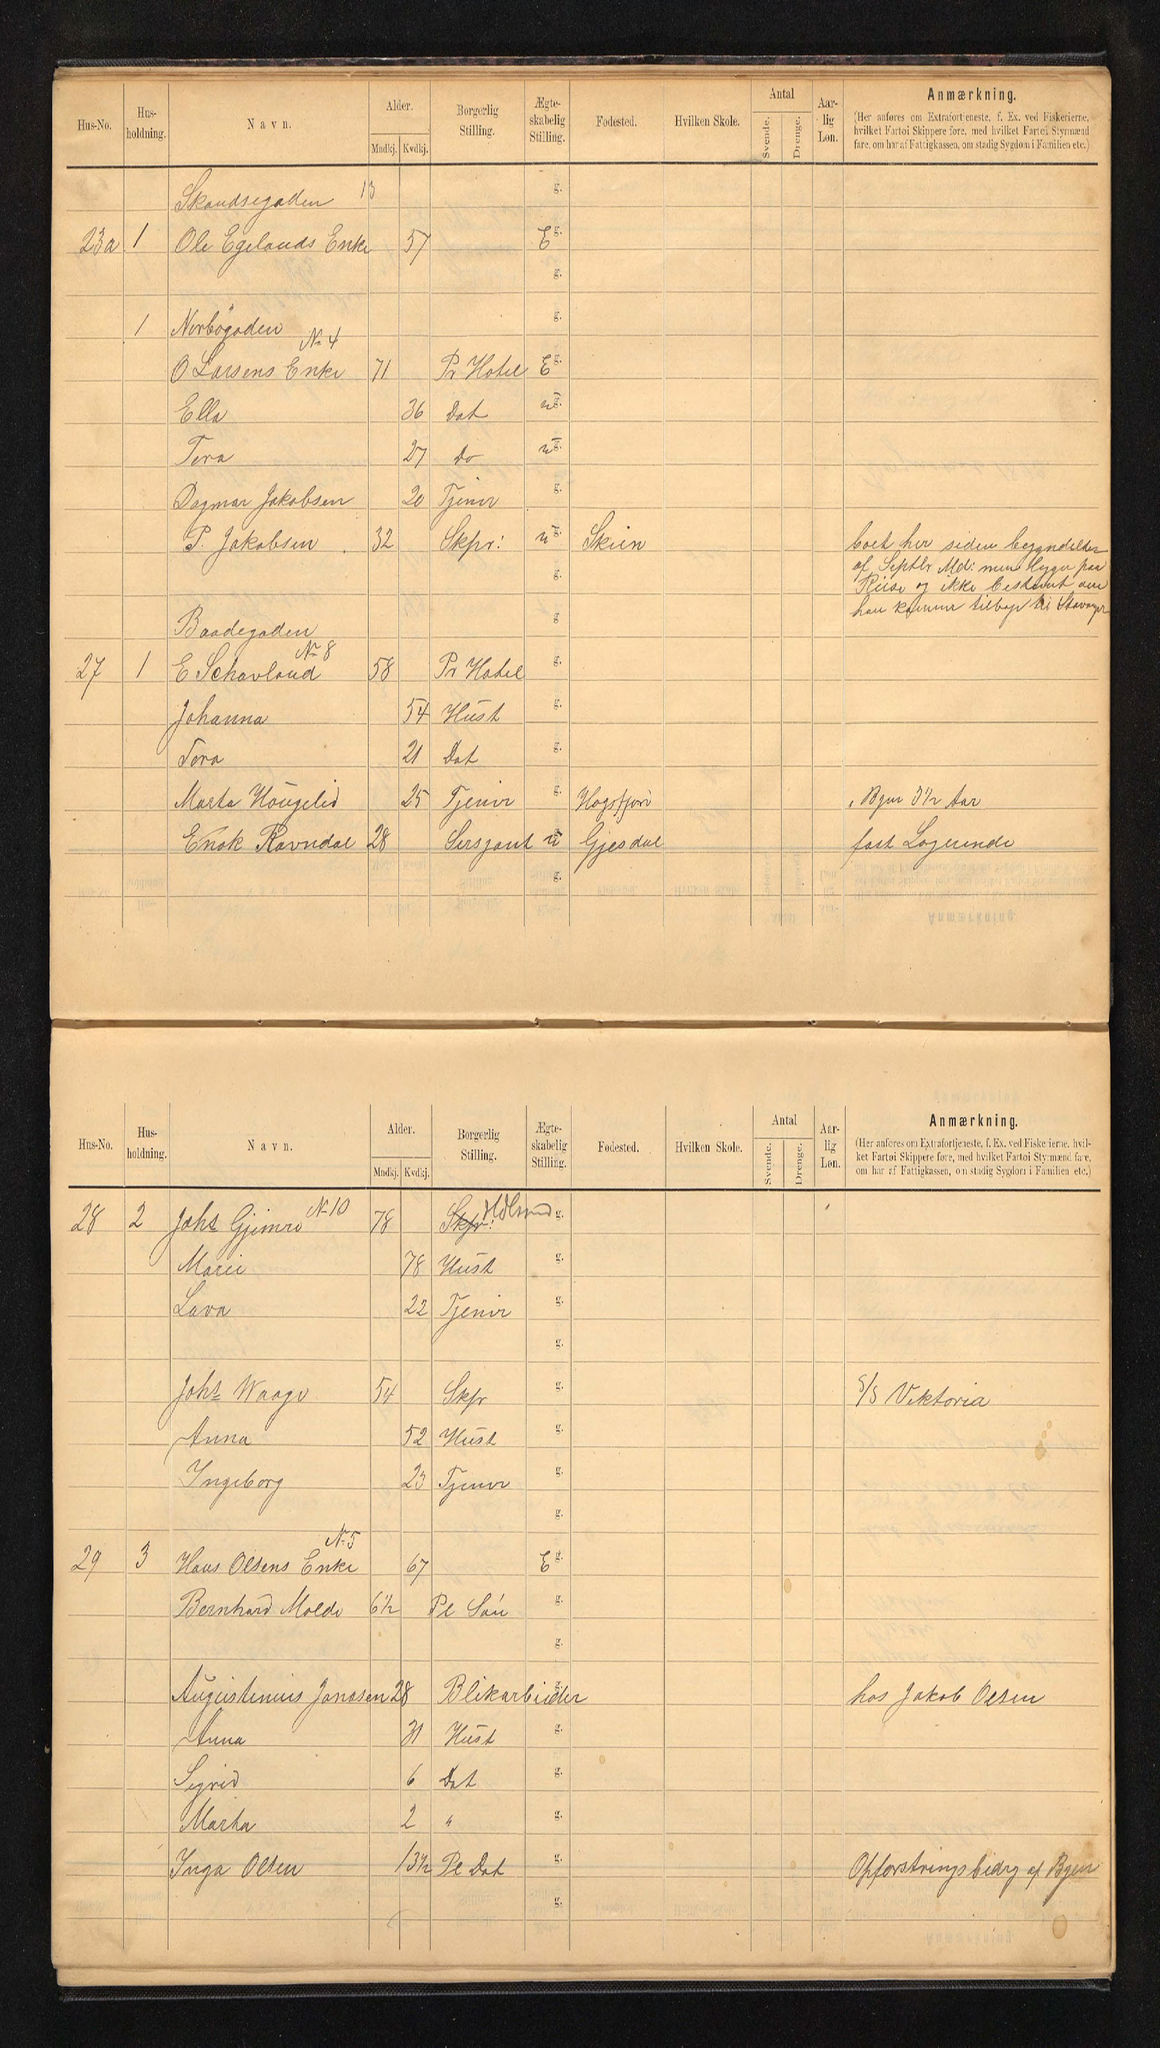 Hus-No. Hus-holdning. Navn. Alder. Mndkj. Kvdkj. Borgerlig Stilling. Ægte-skabelig Stilling. Fødested. Hvilken Skole. Antal Svende. Drenge. Aar-lig Løn. Anmærkning.
(Her anføres om Extrafortjeneste, f. Ex. ved Fiskerierne,
hvilket Fartøi Skippere føre, med hvilket Fartøi Styrmænd
fare, om har af Fattigkassen, om stadig Sygdom i Familien etc.)
Skandsegaden 13 g.
23a 1 Ole Egelands Enke 57 E g.
g.
1 Norbøgaden g.
No 4
O Larsens Enke 71 Pr Hotel E g.
Ella 36 Dat u g.
Tora 27 Do u g.
Dagmar Jakobsen 20 Tjener g.
P. Jakobsen 32 Skpr: u g. Skien boet her siden begyndelsen
g. af Septbr Md: men ligger paa
Reise og ikke bestemt om
Baadegaden g han kommer tilbage til Stavanger
No 8
27 1 E Schavland 58 Pr Hotel g.
Johanna 54 Hust g.
Tora 21 Dat g.
Marta Hougelid 25 Tjener g. Høgsfjord i Byen 3 1/2 Aar
Enok Ravndal 28 Sersjant u g. Gjesdal fast Logerende
g.
Hus-No. Hus-holdning. Navn. Alder. Mndkj. Kvdkj. Borgerlig Stilling. Ægte-skabelig Stilling. Fødested. Hvilken Skole. Antal Svende. Drenge. Aar-lig Løn. Anmærkning.
(Her anføres om Extrafortjeneste, f. Ex. ved Fiskerierne, hvil-
ket Fartøi Skippere føre, med hvilket Fartøi Styrmænd fare,
om har af Fattigkassen, om stadig Sygdom i Familien etc.)
28 2 Johs Gjemre No 10 78 Skpr: g.
Marie 78 Hust g.
Lava 22 Tjener g.
g.
Johs Waage 54 Skpr g. S/S Viktoria
Anna 52 Hust g.
Ingeborg 23 Tjener g.
g.
No 5
29 3 Hans Olsens Enke 67 E g.
Bernhard Molde 6 1/2 Pl Søn g.
g.
Augustinius Jonasen 28 Blikarbeider g. hos Jakob Olsen
Anna 31 Hust g.
Sigrid 6 Dat g.
Marta 2 " g.
Inga Olsen 13 1/2 Pl Dat g. Opfostringsbidrg af Byen
g.